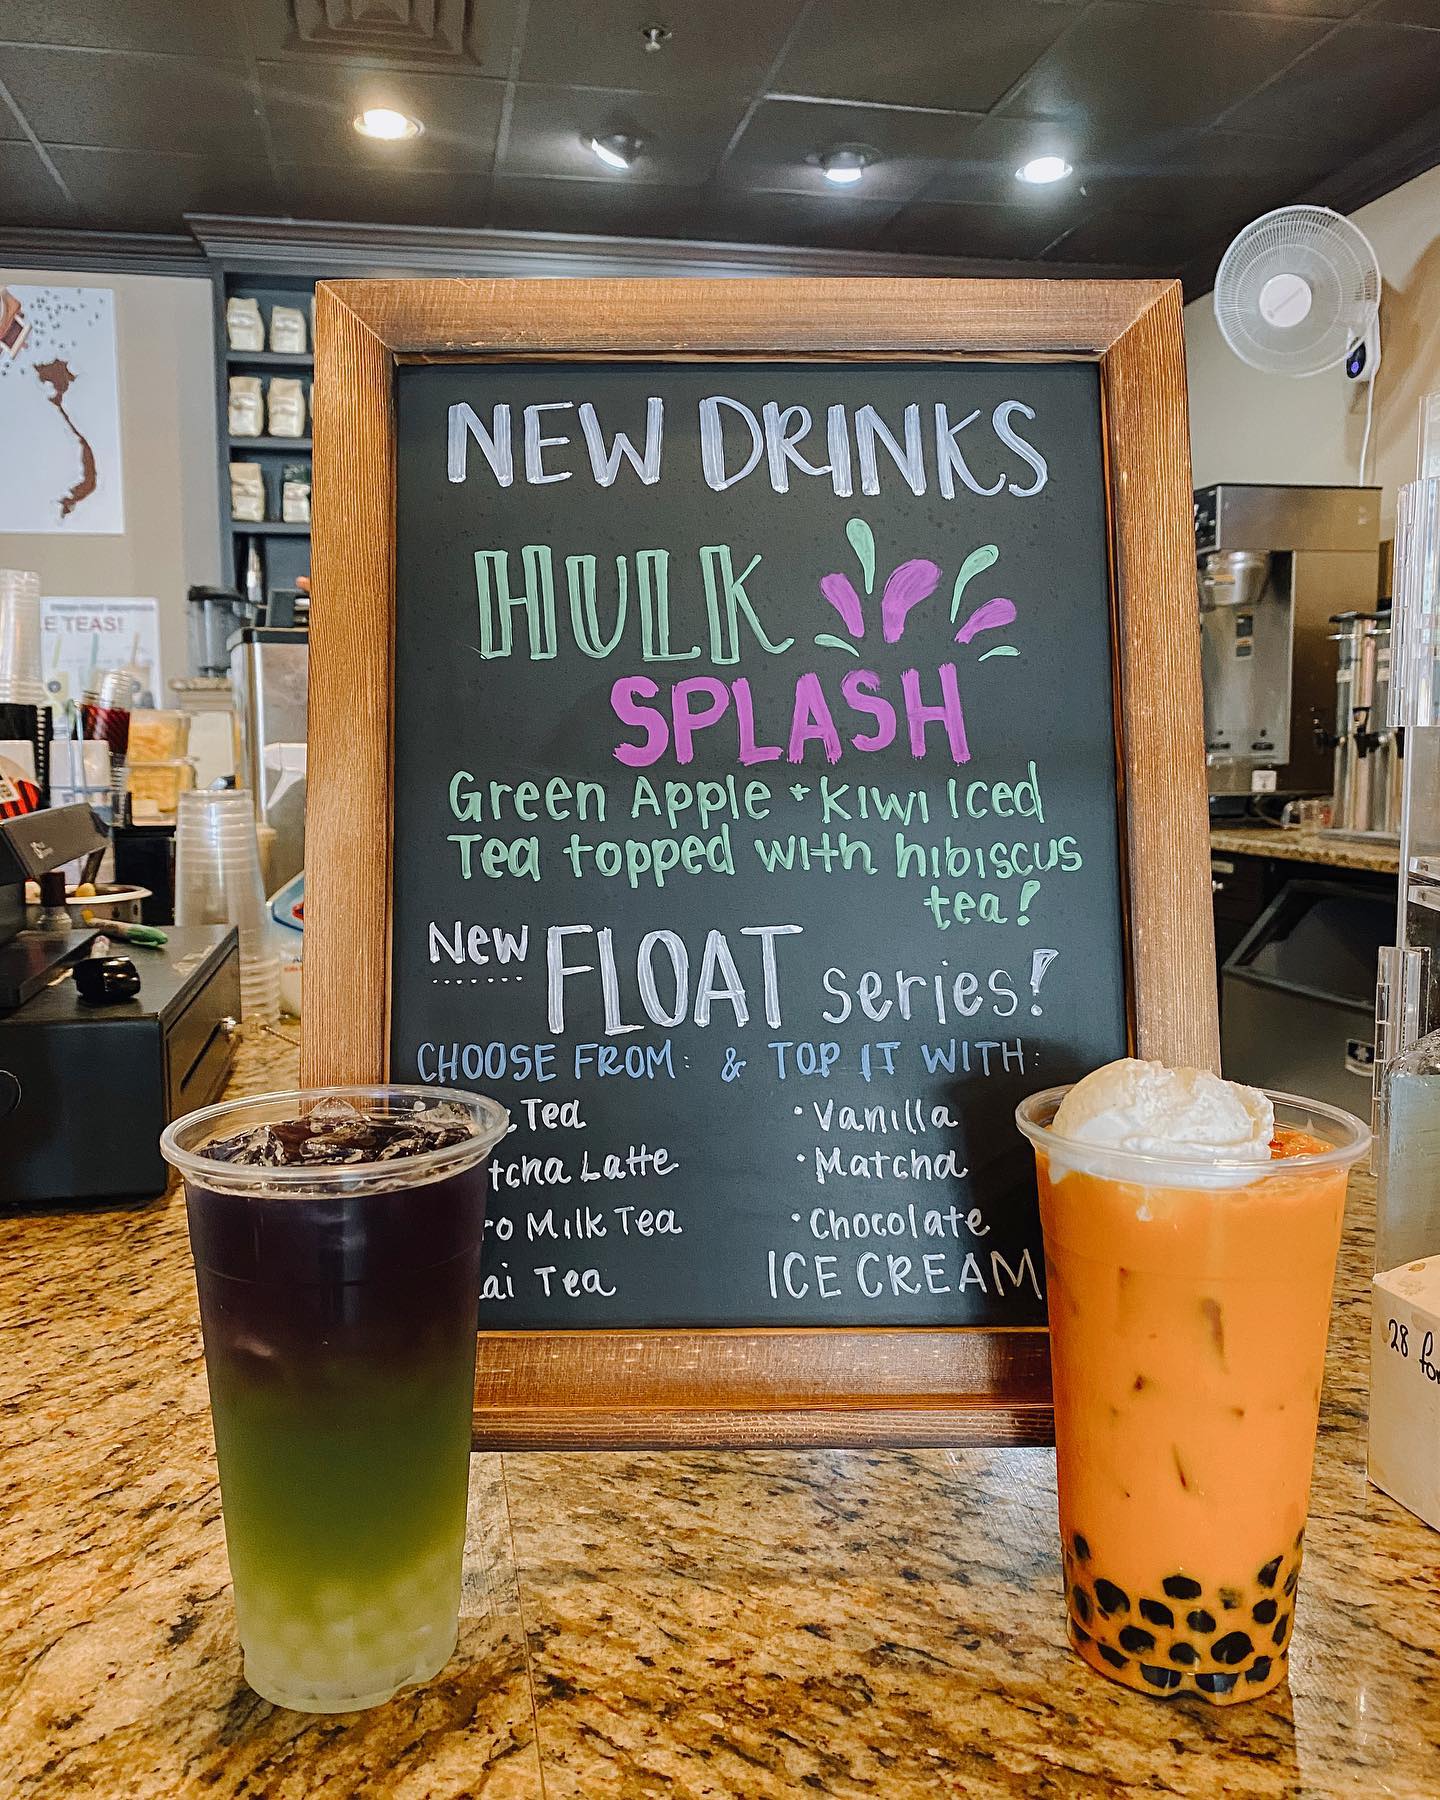 NEW DRINKS
HULK
SPLASH
Green Apple + Kiwi Iced
Tea topped with hibiscus
tea!
New FLOAT series!
CHOOSE FROM: & TOP IT WITH:
Tea
• Vanilla
Latte
• Matcha
Milk Tea
• Chocolate
Tea
ICE CREAM
E TEAS!
28 for